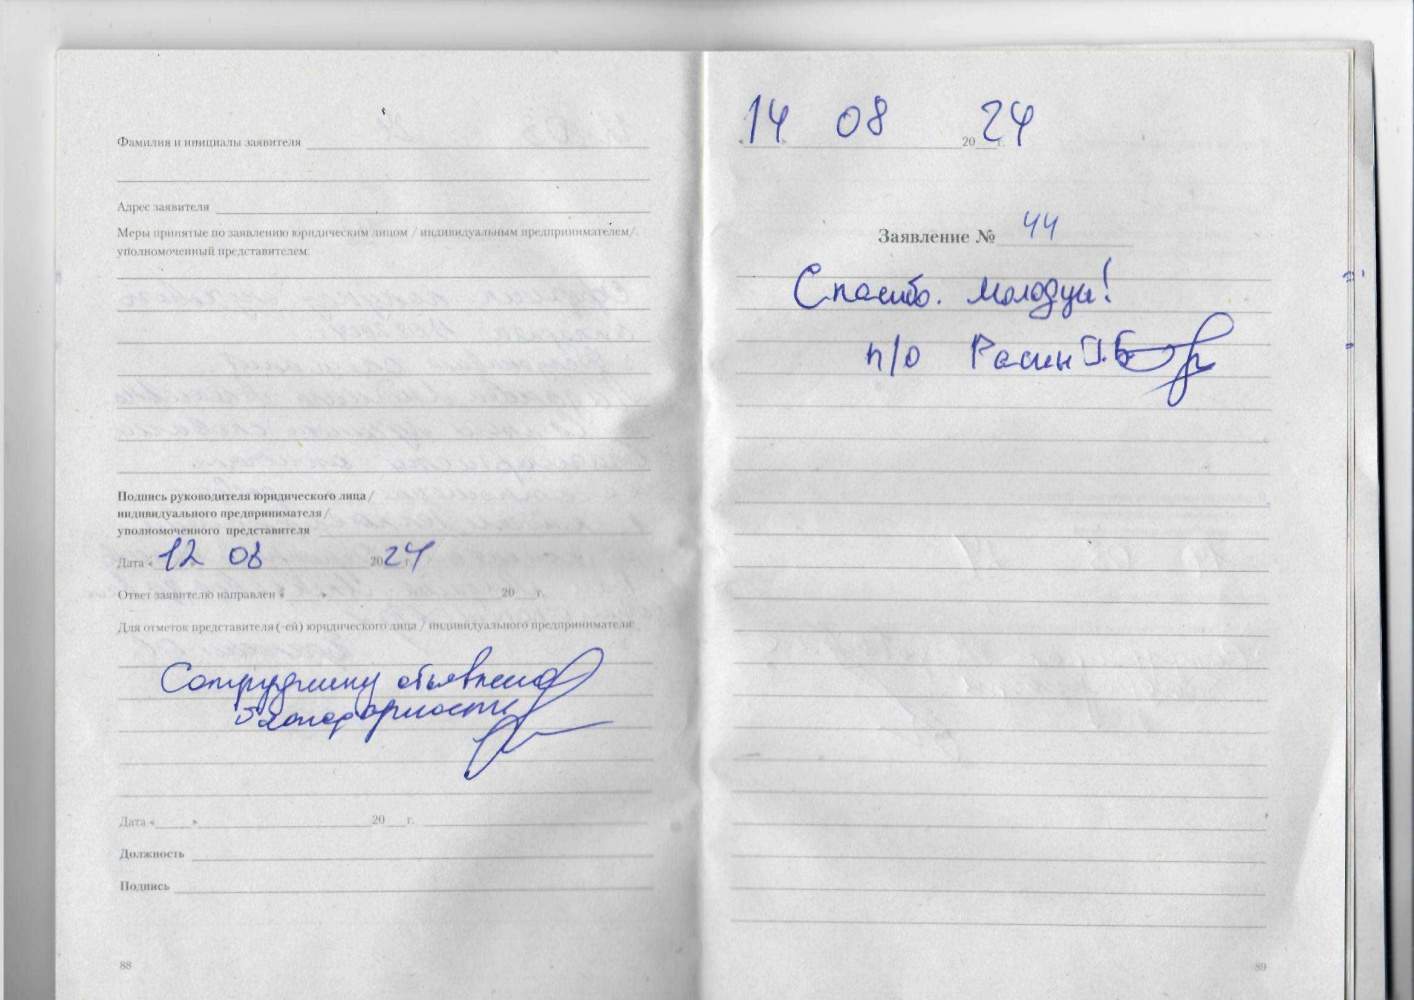 Фамилия и инициалы заявителя
Адрес заявителя
Меры принятые по заявлению юридическим лицом / индивидуальным предпринимателем/
уполномоченный представителем:
Подпись руководителя юридического лица /
индивидуального предпринимателя /
уполномоченного представителя
Дата « 12 08 2024 г.
Ответ заявителю направлен « » 20 г.
Для отметок представителя (-ей) юридического лица / индивидуального предпринимателя:
Сотруднику объявлена
благодарность
Дата « » 20 г.
Должность
Подпись
88
14 08 20 24 г.
Заявление № 44
Спасибо. Молодцы!
п/о Расин
89